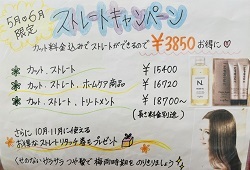 5月6月
限定
ストレートキャンペーン
カット料金込みでストレートができるので ¥3850お得に♡
カット、ストレート ¥15400
カット、ストレート、ホームケア商品 ¥16720
カット、ストレート、トリートメント ¥18700〜
(長さ料金別途)
さらに10月・11月に使える
お得なストレートリタッチ券をプレゼント
くせのないサラサラつや髪で梅雨時期をのりきりましょう
N.